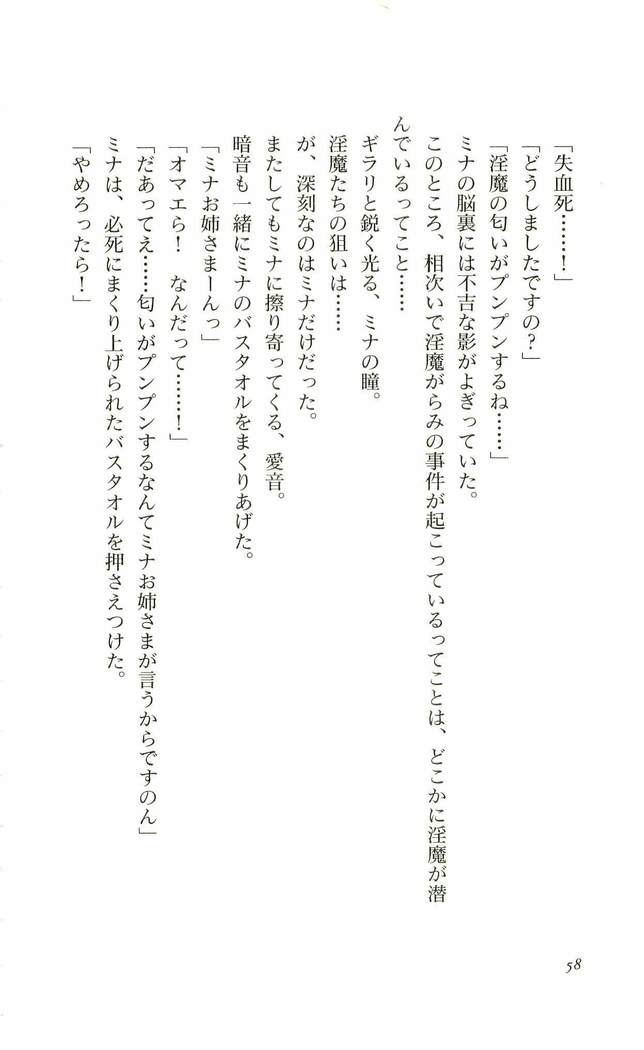 「失血死……！」
「どうしましたですの？」
「淫魔の匂いがプンプンするね……」
ミナの脳裏には不吉な影がよぎっていた。
このところ、相次いで淫魔がらみの事件が起こっているってことは、どこかに淫魔が潜
んでいるってこと……
ギラリと鋭く光る、ミナの瞳。
淫魔たちの狙いは……
が、深刻なのはミナだけだった。
またしてもミナに擦り寄ってくる、愛音。
暗音も一緒にミナのバスタオルをまくりあげた。
「ミナお姉さまーんっ」
「オマエら！　なんだって……！」
「だあってえ……匂いがプンプンするなんてミナお姉さまが言うからですのん」
ミナは、必死にまくり上げられたバスタオルを押さえつけた。
「やめろったら！」
58